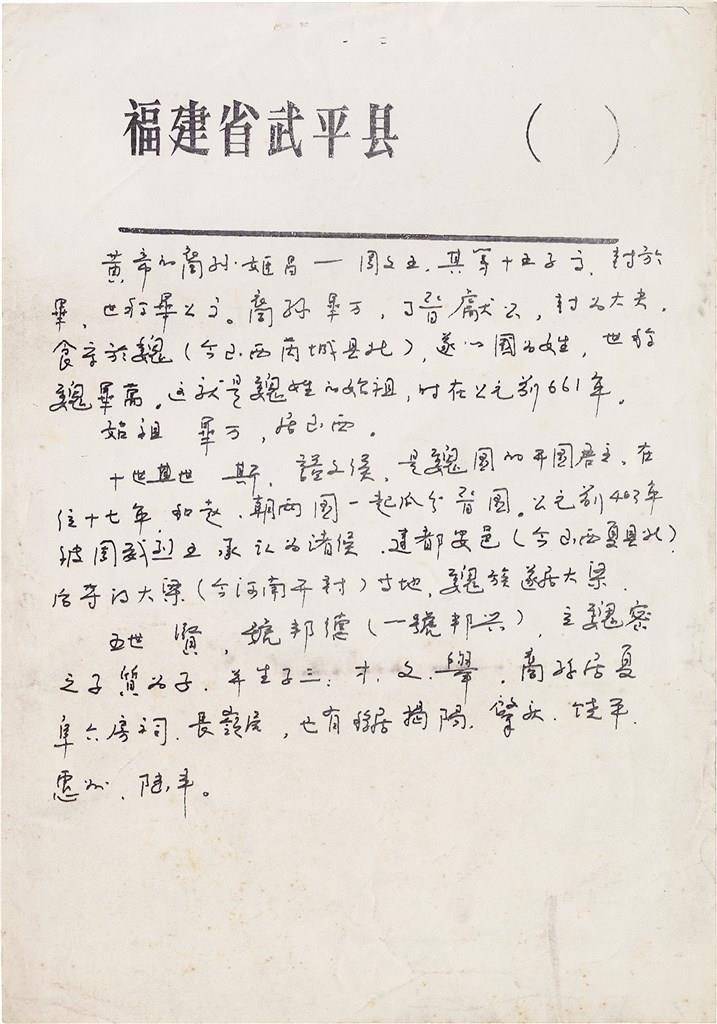 福建省武平县 （ ）
黄帝的裔孙·姬昌一周文王，其第十五子高，封於
畢，世称畢公高。裔孙畢万，晋獻公，封为大夫，
食於魏（今山西芮城县北），遂以國为姓，世称
魏畢萬。这就是魏姓的始祖，时在公元前661年。
始祖 畢万，居山西。
十世 斯，謚文侯，是魏國的开國君主，在
位十七年，和赵、朝两國一起瓜分晋國。公元前403年
被周威烈王承认为诸侯，建都安邑（今山西夏县北）
后夺的大梁（今河南开封）等地，魏族遂居大梁．
五世 賢，號邦德（一號邦兴），立魏密
之子質为子，并生子三：才、文、，裔孙居夏
阜六房祠、長嶺尾，也有移居揭陽、肇庆、饶平、
惠州、陆丰。